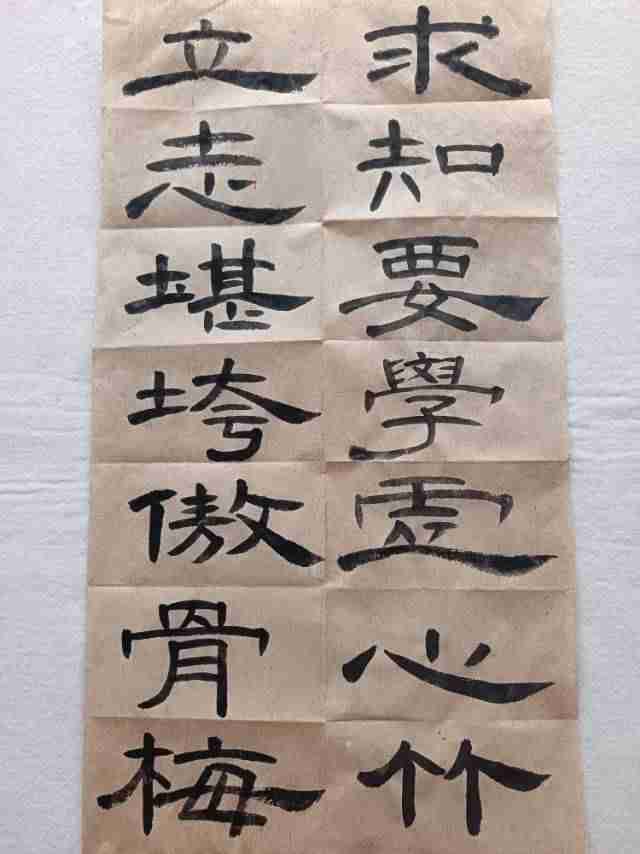 求知要學虛心竹
立志堪垮傲骨梅